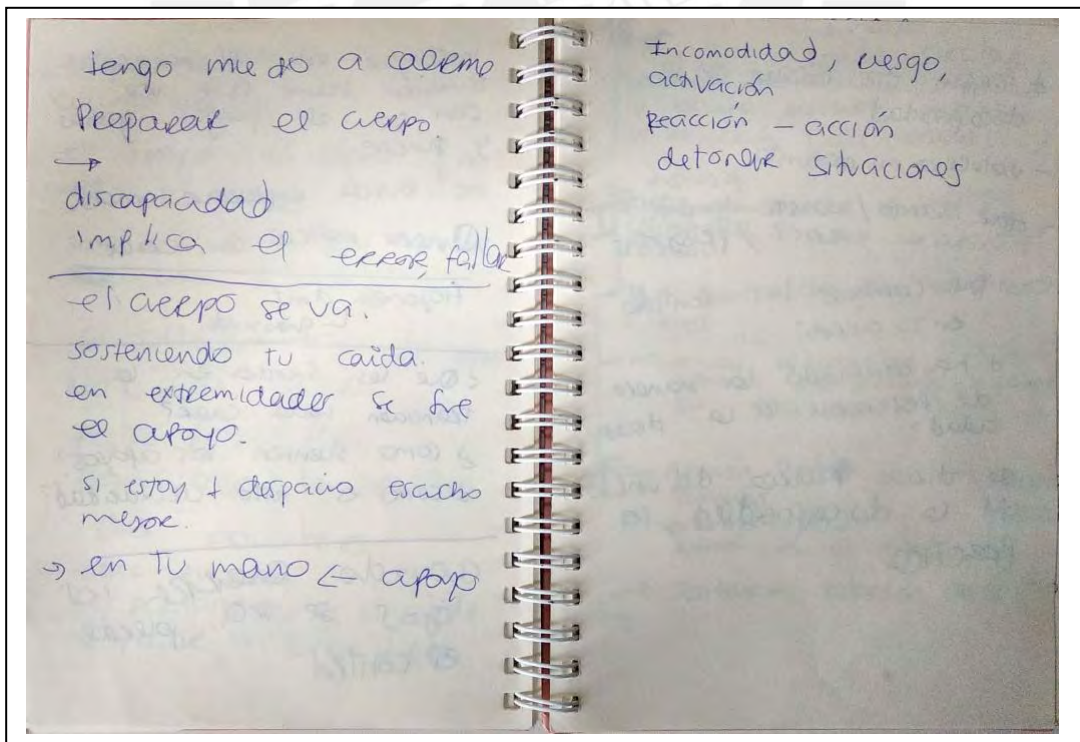 tengo miedo a caerme
Preparar el cuerpo.
→
discapacidad
implica el error, fallar
el cuerpo se va.
sosteniendo tu caída.
en extremidades se fue
el apoyo.
si estoy + despacio escucho
mejor.
→ en tu mano ← apoyo
Incomodidad, riesgo,
activación
Reacción – acción
detonar situaciones